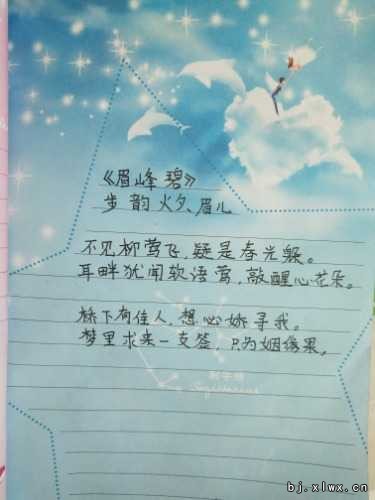 《眉峰碧》
步韵火夕、眉儿
不见柳莺飞，疑是春光躲。
耳畔犹闻软语莺，敲醒心花朵。
桥下有佳人，想必娇寻我。
梦里求来一支签，只为姻缘果。
射手座
Sagittarius
bj.xlwx.cn